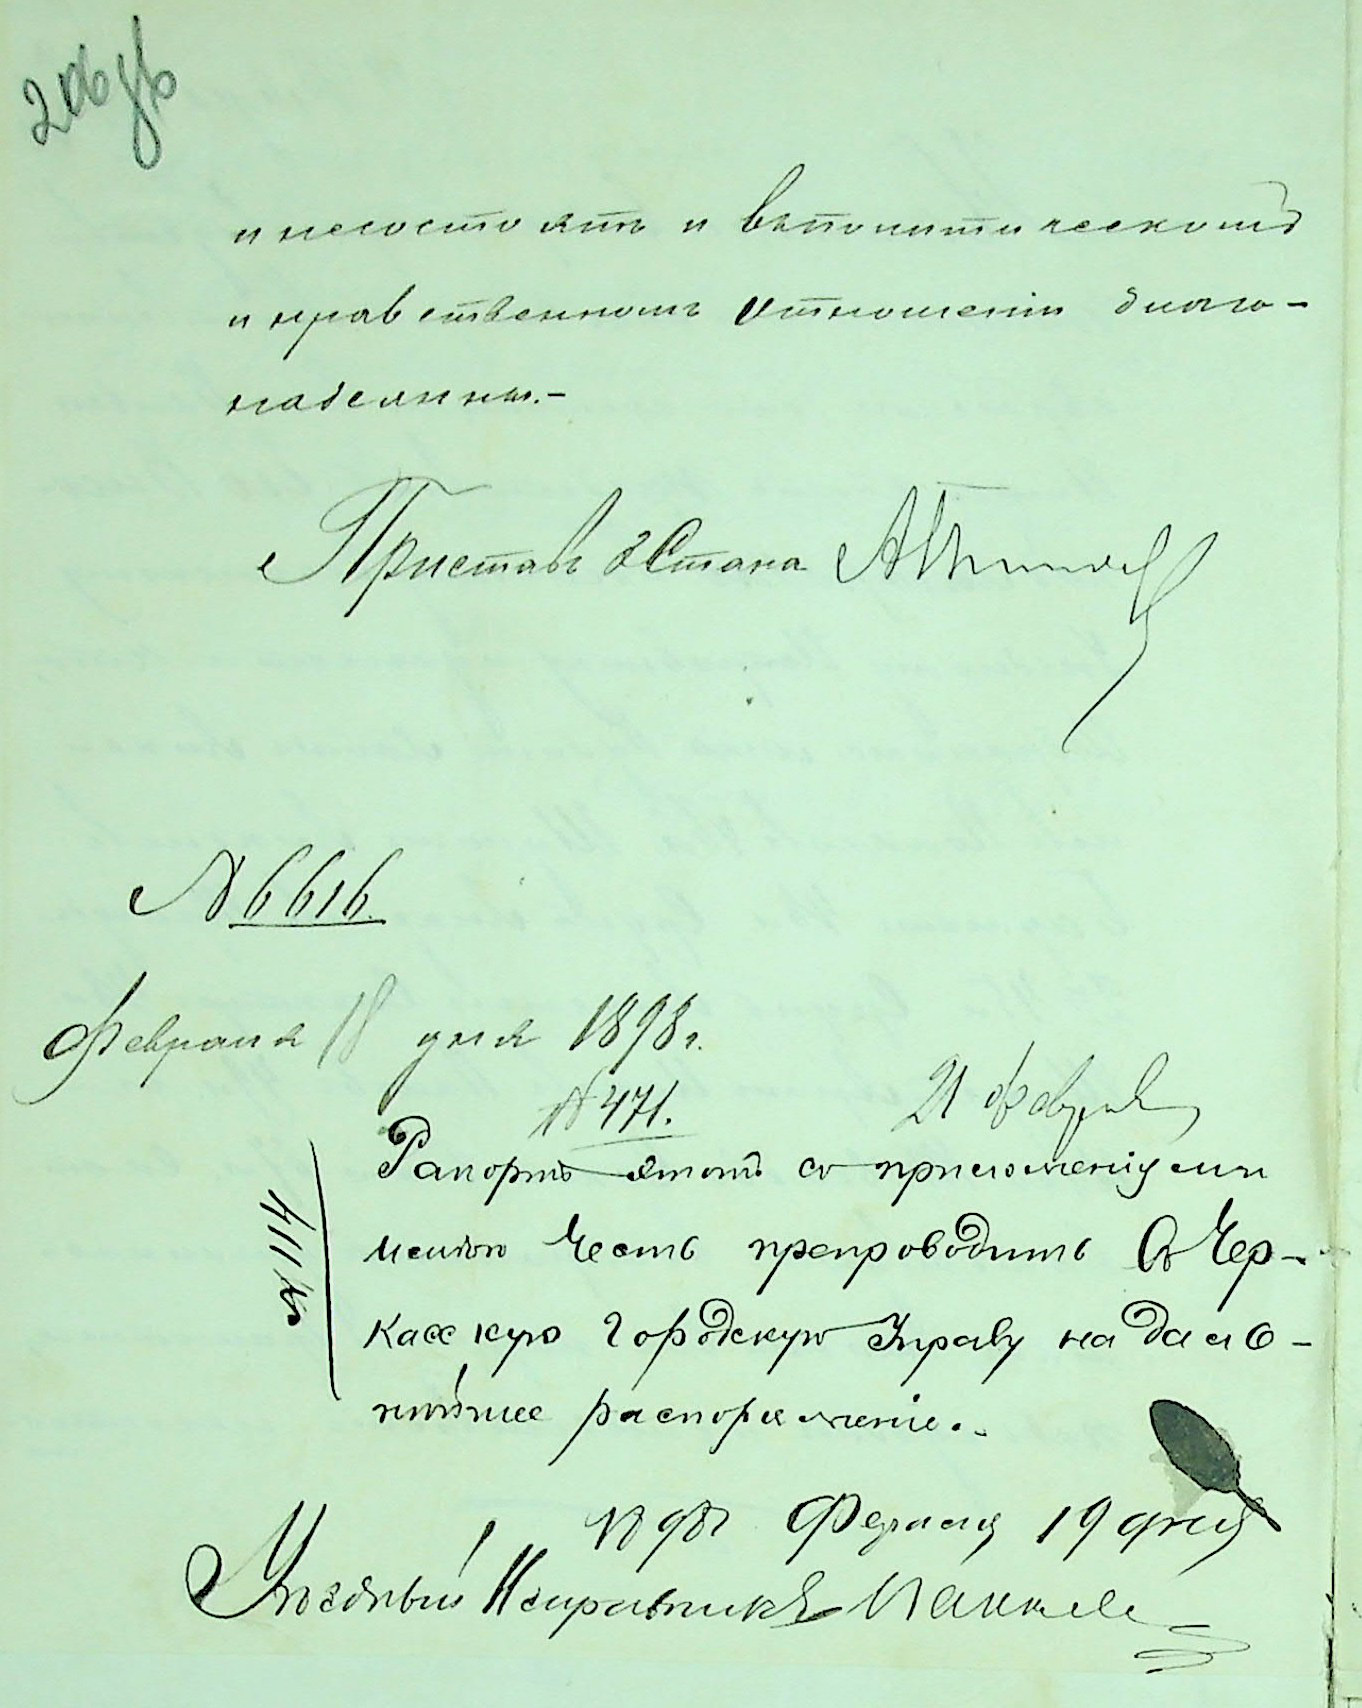 206 об
и несостоятъ и въ политическомъ
и нравственномъ отношеніи благо-
надежны.-
Приставъ 2 Стана
№ 6616.
Февраля 18 дня 1898 г.
№ 471. 21 февраля
Рапортъ этотъ съ приложеніями
имѣю честь препроводить Въ Чер-
касскую Городскую Управу на даль-
нѣйшее распоряженіе.
1898 Февраля 19 дня
Уѣздный Исправникъ